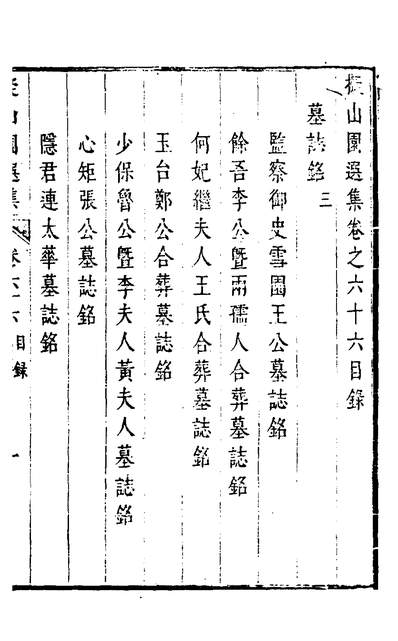 擬山園選集卷之六十六目錄
墓誌銘三
監察御史雪園王公墓誌銘
餘吾李公暨兩孺人合葬墓誌銘
何妃繼夫人王氏合葬墓誌銘
玉台鄭公合葬墓誌銘
少保魯公暨李夫人黃夫人墓誌銘
心矩張公墓誌銘
隱君連太華墓誌銘
山園選集 卷六十六 目錄 一